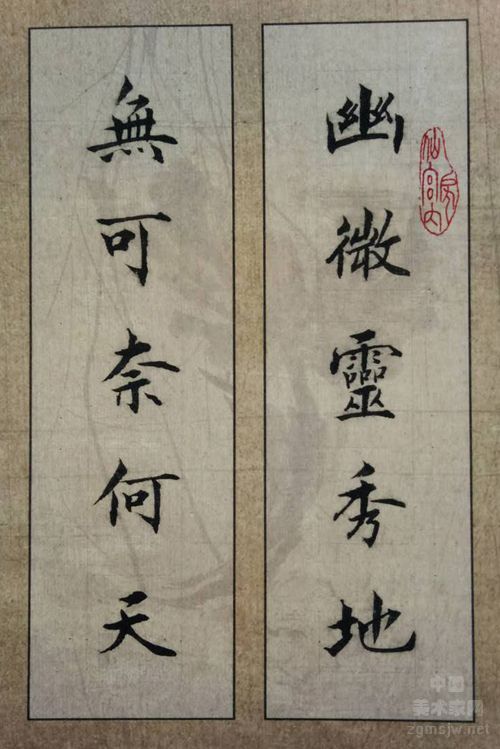 幽微靈秀地
無可奈何天
中国
美术家网
zgmsjw.net